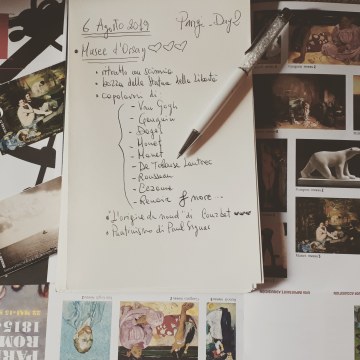 6 Agosto 2019
Parigi - Day 2
• Musee d'Orsay ♡♡♡
• ritratto au
• bozza della Statua della Libertà
• capolavori di
- Van Gogh
- Gauguin
- Degas
- Monet
- Manet
- De Toulouse Lautrec
- Rousseau
- Cezanne
- Renoir & more ...
• L'origine du monde di Courbet ♥♥♥
• Puntinismo di Paul Signac
PARI
ROM
1815